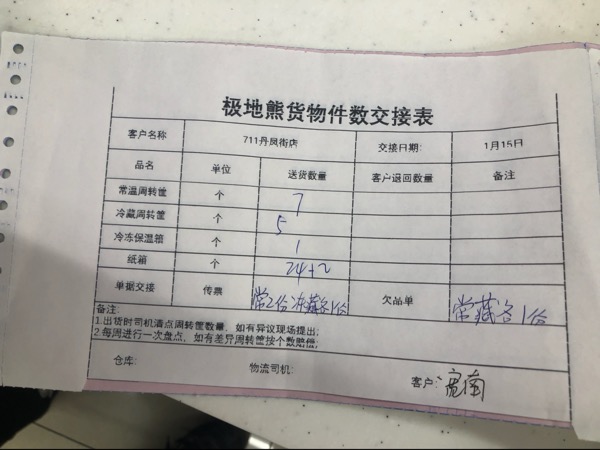 极地熊货物件数交接表
客户名称 711丹凤街店 交接日期: 1月15日
品名 单位 送货数量 客户退回数量 备注
常温周转筐 个 7
冷藏周转筐 个 5
冷冻保温箱 个 1
纸箱 个 24+2
单据交接 传票 常2份冻藏各1份 欠品单 常藏各1份
备注:
1.出货时司机清点周转筐数量, 如有异议现场提出;
2.每周进行一次盘点, 如有差异周转筐按个数赔偿;
仓库: 物流司机: 客户: